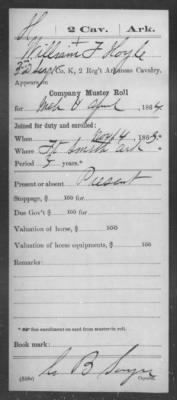 H 2 Cav. Ark.
William F Hoyle
2d Sergt, Co. K, 2 Reg't Arkansas Cavalry.
Appears on
Company Muster Roll
for Mch & April, 1864.
Joined for duty and enrolled:
When Nov 4, 1863.*
Where Ft. Smith Ark
Period 3 years.*
Present or absent Present
Stoppage, $ 100 for
Due Gov't $ 100 for
Valuation of horse, $ 100
Valuation of horse equipments, $ 100
Remarks:
* See enrollment on card from muster-in roll.
Book mark:
(358c) Copyist.